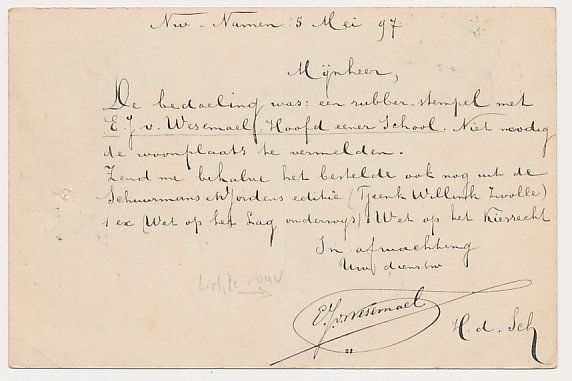 Nw-Namen: 5 Mei 97
Mijnheer,
De bedoeling was: een rubber-stempel met
E. J. v. Wesemael, Hoofd eener School. Niet noodig
de woonplaats te vermelden.
Zend me behalve het bestelde ook nog uit de
Schuurmans & Jordens editie (Tjeenk Willink Zwolle)
1 ex (Wet op het Lag onderwijs) Wet op het Kiesrecht
In afwachting
Uw dienstw
Lichte vouw
E. J. v. Wesemael
H. d. Sch